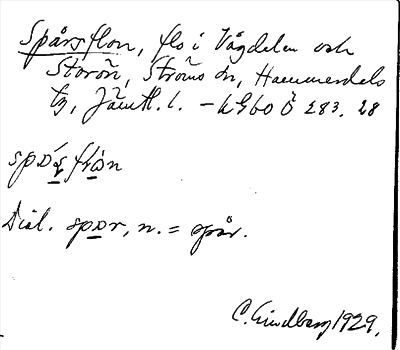 Spårsflon, flo i Vågdelen och
Storön, Ströms sn, Hammerdals
tg, Jämtl. l. – kgbo Ö 283. 28
flɒn
Dial. spɒr, n. = spår.
C. Lindberg 1929.